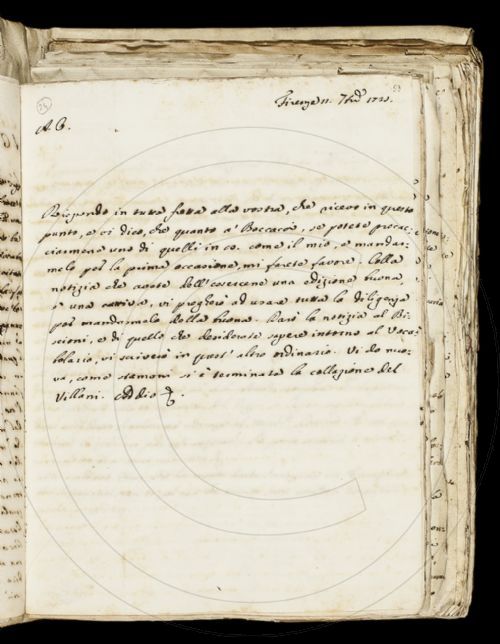 26
Firenze 11. 7bre 1723.
A. C.
Rispondo in tutta fretta alla vostra, che ricevo in questo
punto, e vi dico, che quanto a' Boccacci, se potete procac-
ciarmene uno di quelli in co. come il mio, e mandar-
melo per la prima occasione, mi farete favore. Colla
notizia che avete dell'essercene una edizione buona,
e una cattiva, vi pregherò ad usare tutta la diligenza
per mandarmelo della buona. Darò la notizia al Bi-
scioni, e di quello che desiderate sapere intorno al Voca-
bolario, vi scriverò in quest' altro ordinario. Vi do nuo-
va, come stamani si è terminata la collazione del
Villani. Addio